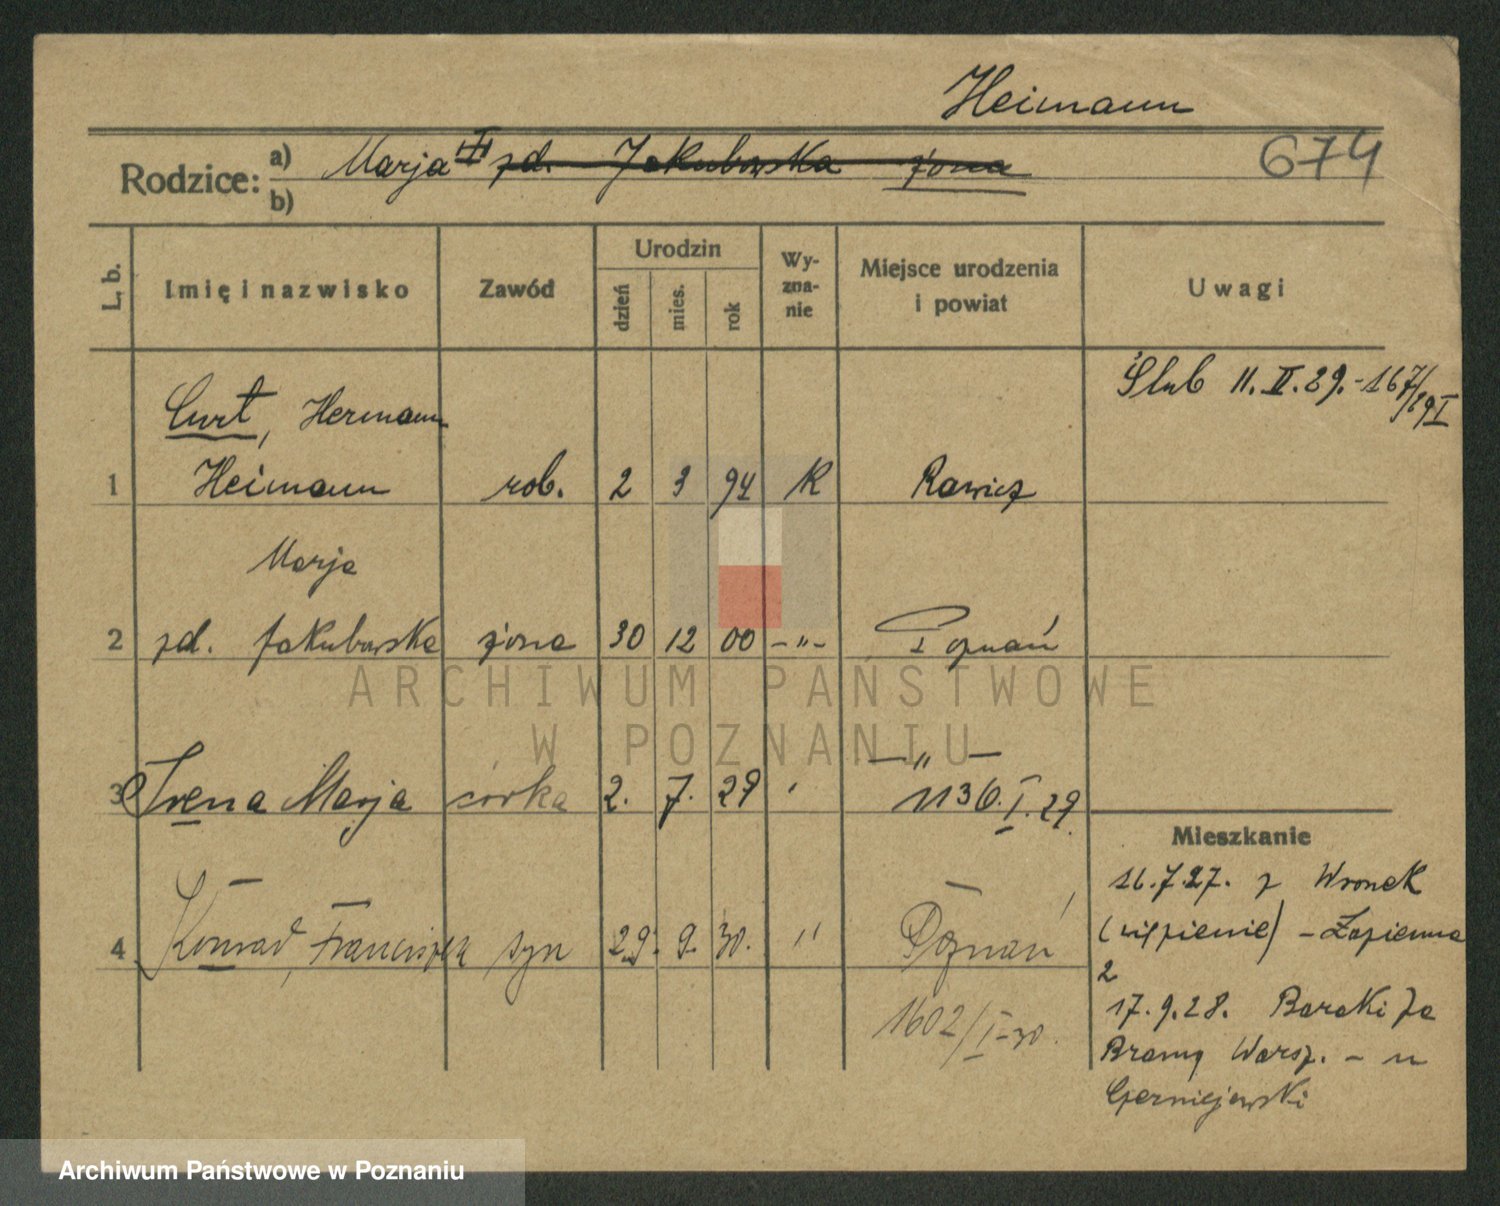 Heimann
Rodzice: a) Marja zd. Jakubowska żona 674
b)
L. b. Imię i nazwisko Zawód Urodzin dzień mies. rok Wyznanie Miejsce urodzenia i powiat Uwagi
Ślub 11. II. 29. - 167/29 I
Curt, Hermann
1 Heimann rob. 2 3 94 K Rawicz
Marja
2 zd. Jakubowska żona 30 12 00 -"- Poznań
— " —
3 Irena Marja córka 2. 7. 29 ' 1136. I. 29.
Mieszkanie
4 Konrad, Franciszek syn 29. 9. 30. " Poznań
1602/I-30.
16.7.27. z Wronek
(więzienie) - Łazienna
2
17.9.28. Baraki Za
Bramą Warsz. - u
Czerniejewski
ARCHIWUM PAŃSTWOWE
W POZNANIU
Archiwum Państwowe w Poznaniu